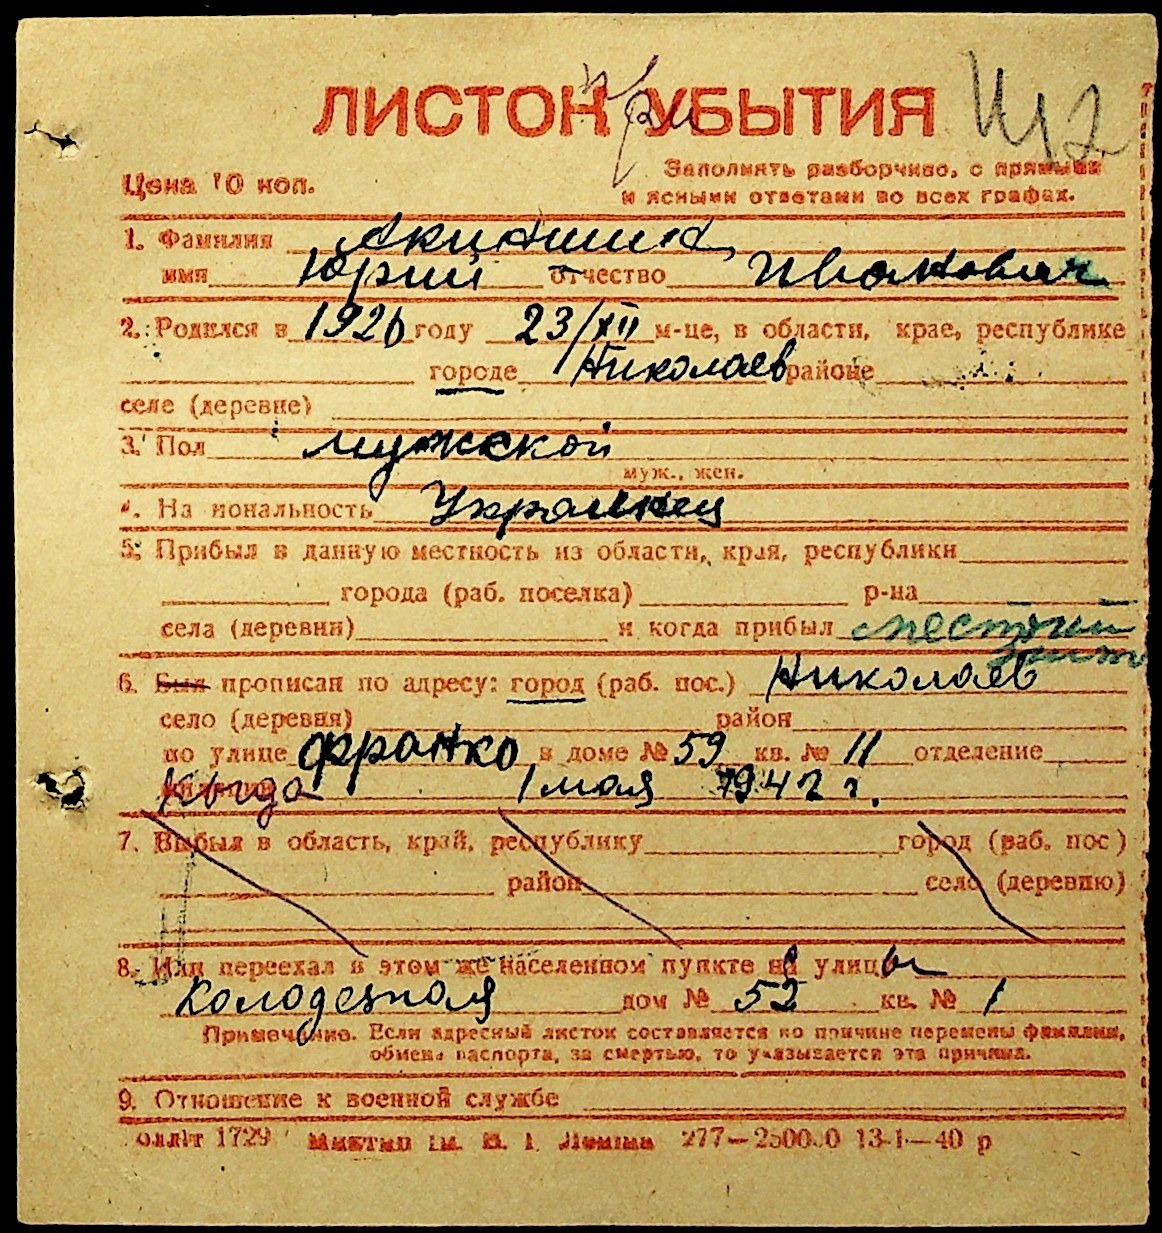 ЛИСТОК УБЫТИЯ
при
Цена 10 коп.
Заполнять разборчиво, с прямыми
и ясными ответами во всех графах.
1. Фамилия Акиншин
имя Юрий отчество Иванович
2. Родился в 1926 году 23/XII м-це, в области, крае, республике
городе Николаев районе
селе (деревне)
3. Пол мужской
муж., жен.
4. Национальность Украинец
5. Прибыл в данную местность из области, края, республики
города (раб. поселка) р-на
села (деревни) и когда прибыл местный
6. Был прописан по адресу: город (раб. пос.) Николаев
село (деревня) район
по улице Франко в доме № 59 кв. № 11 отделение
Куда 1 мая 1942 г.
7. Выбыл в область, край, республику город (раб. пос.)
район село (деревню)
8. Или переехал в этом же населенном пункте на улицы
Колодезная дом № 52 кв. № 1
Примечание. Если адресный листок составляется по причине перемены фамилии,
обмена паспорта, за смертью, то указывается эта причина.
9. Отношение к военной службе
1729 277—250000 13-1—40 р